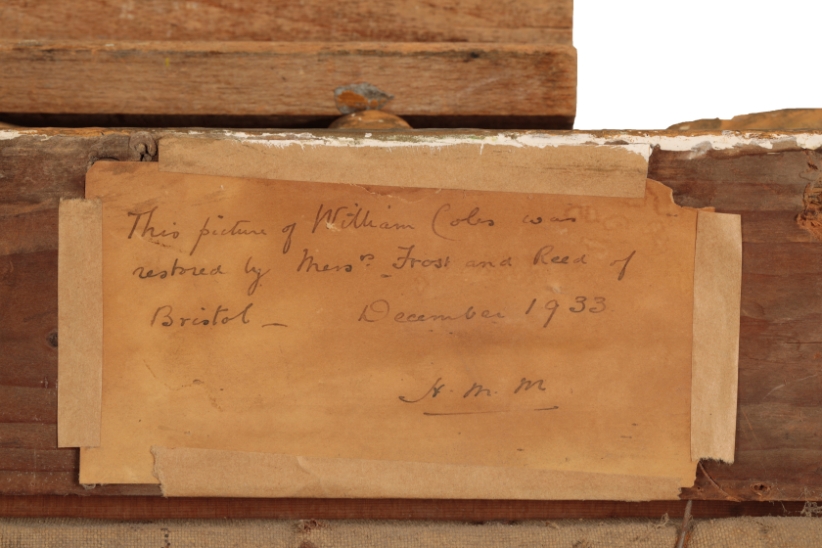 This picture of William Coles was
restored by Messrs Frost and Reed of
Bristol — December 1933
H. M. M